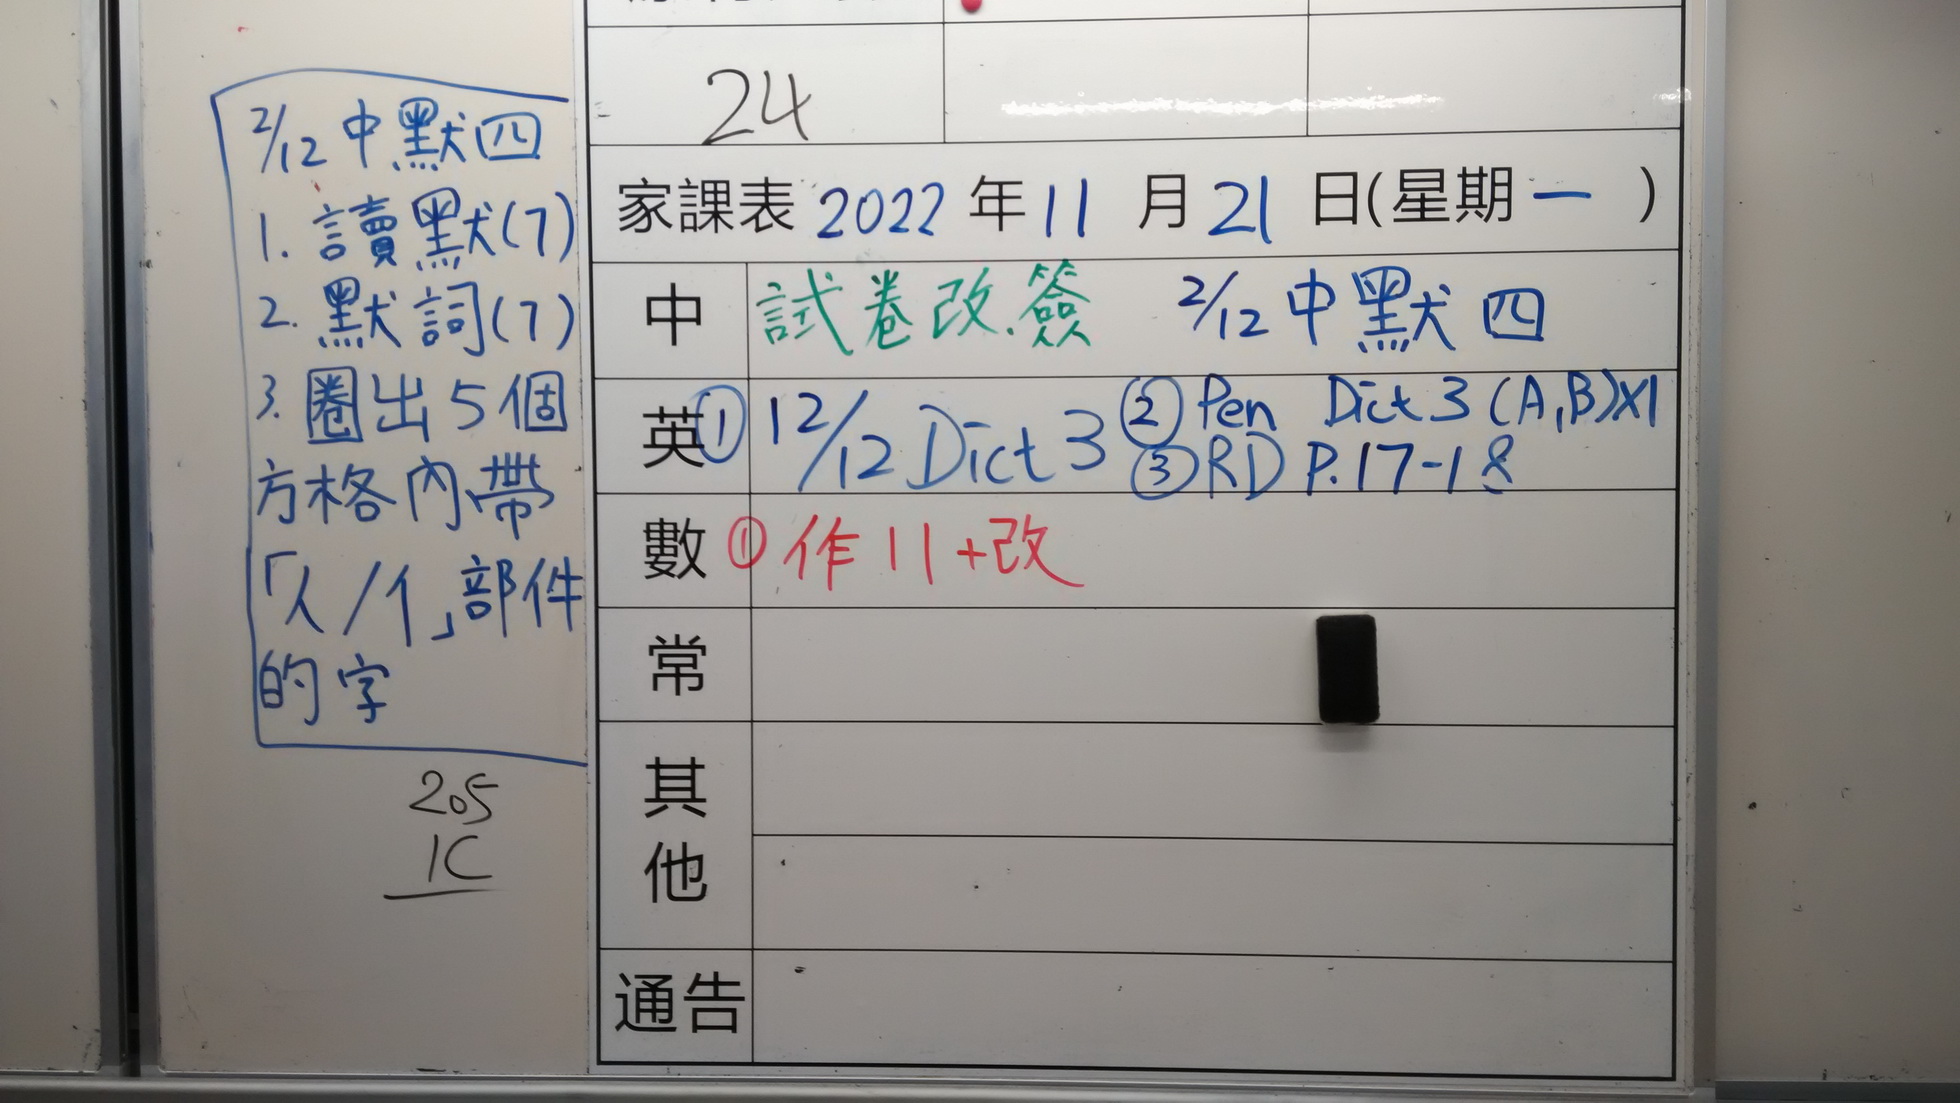 2/12 中默四
1. 讀默(7)
2. 默詞(7)
3. 圈出5個
方格內帶
「人/亻」部件
的字
205
1C
24
家課表 2022 年 11 月 21 日(星期 一 )
中 試卷改.簽 2/12 中默四
英 ① 12/12 Dict 3 ② Pen Dict 3 (A,B)X1
③ RD P.17-18
數 ① 作11+改
常
其他
通告